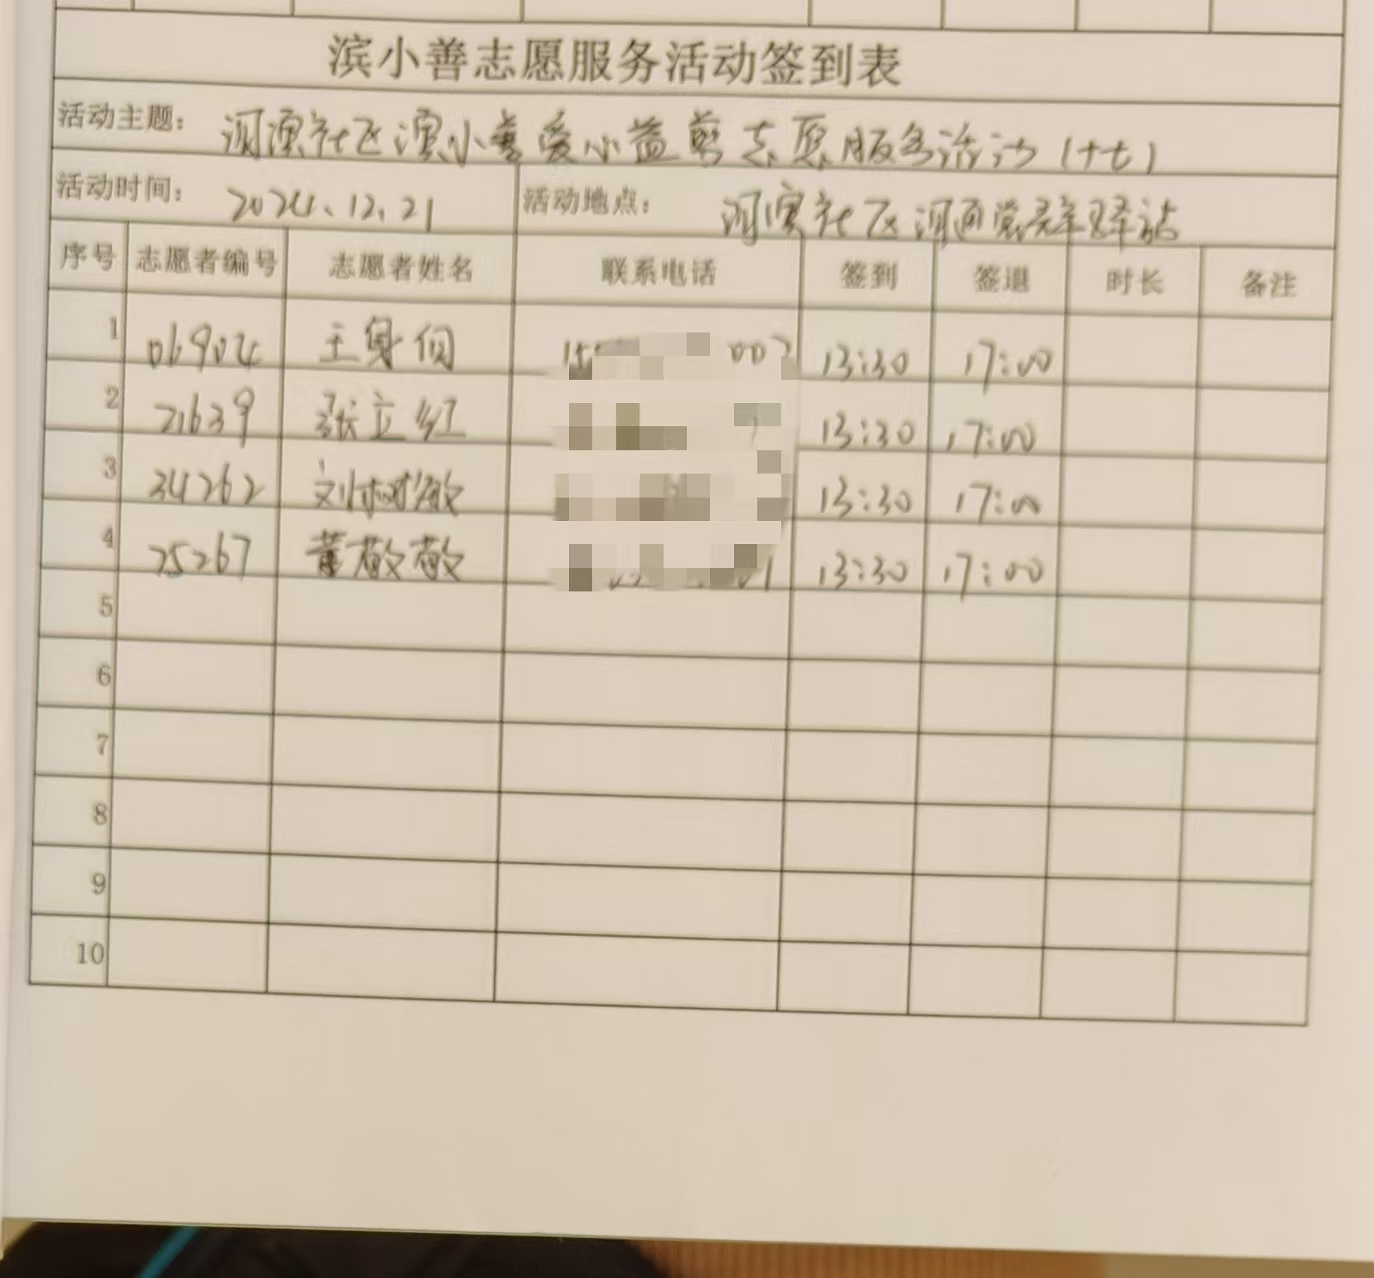 滨小善志愿服务活动签到表
活动主题: 河滨社区滨小善爱小益剪志愿服务活动(十七)
活动时间: 2024.12.21 活动地点: 河滨社区河西党群驿站
序号 志愿者编号 志愿者姓名 联系电话 签到 签退 时长 备注
1 06904 王身 13:30 17:00
2 21639 张立红 13:30 17:00
3 34262 刘树敏 13:30 17:00
4 25267 董敬敬 13:30 17:00
5
6
7
8
9
10